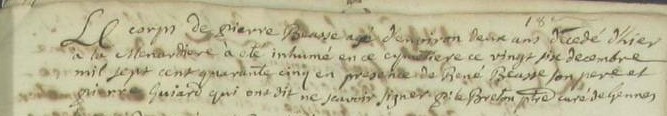 Le corps de pierre Beasse agé d'environ deux ans décedé d'hier
a la Menardiere à eté inhumé en ce cymetiere ce vingt six decembre
mil sept cent quarante cinq en presence de René Beasse son pere et
pierre Guiard qui ont dit ne scavoir signer le Breton ptre curé de Gennes